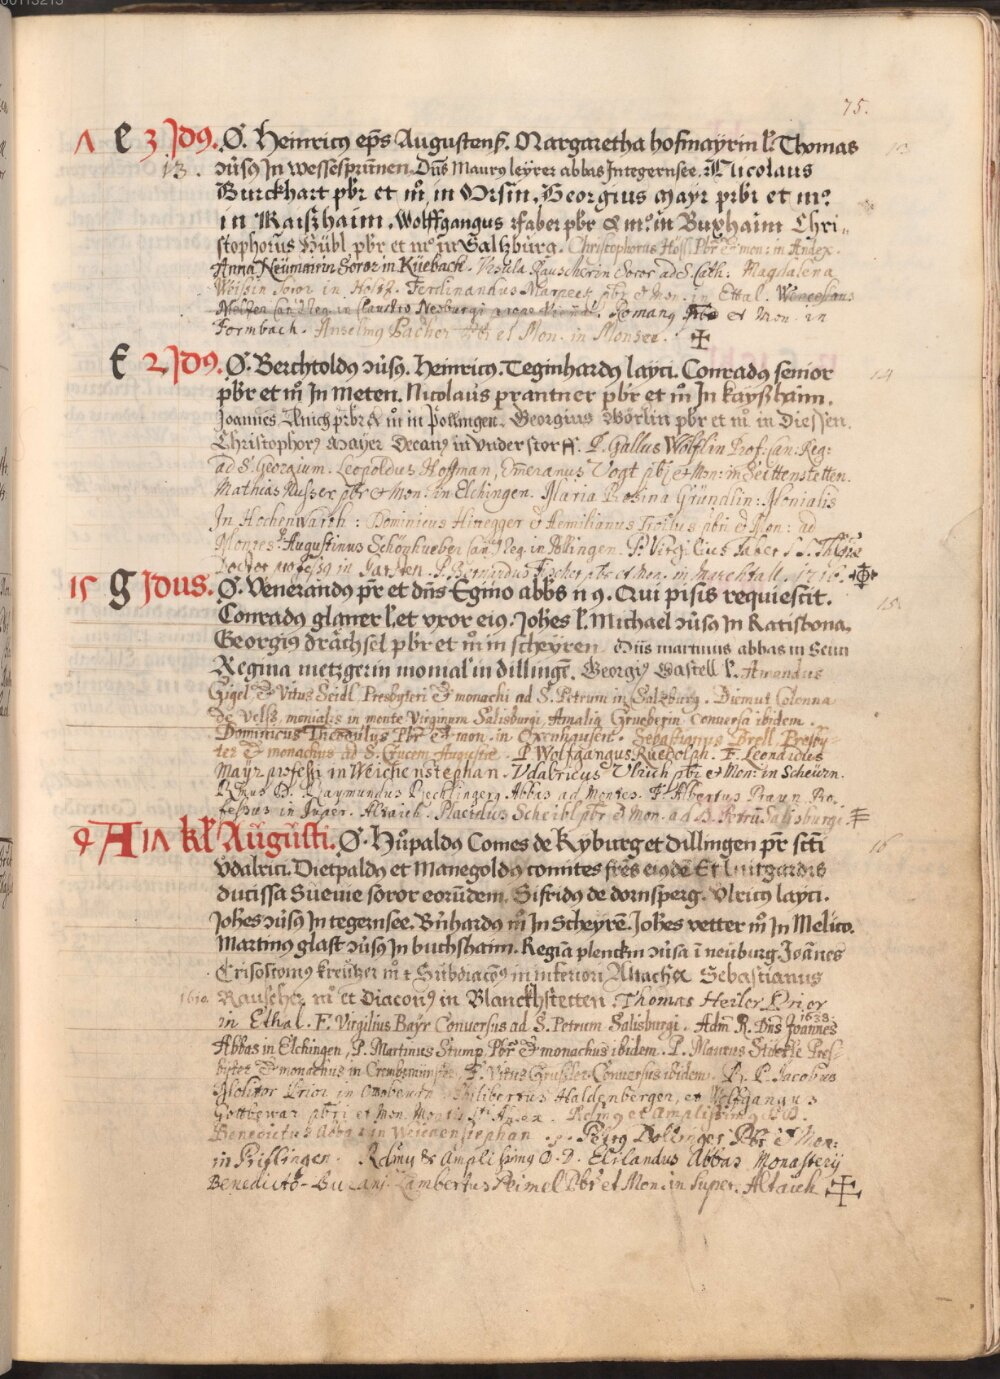 75.
1 e 3 Jdꝰ. Ø. Heinricꝰ ep̄s Augustenſ. Margaretha hofmayrin l. Thomas
13. ɔu̇sꝰ Jn wessesprunnen. Dn̄s Maurꝰ leyrer abbas Integernsee. Nicolaus
Burckhart pb̄r et m̊ in Orsin. Georgius Mayr prb̄r et mo.
in Kaißhaim. Wolffgangus Faber pb̄r & mo. in Buxhaim Chri-
stophorus Hübl pb̄r et mo in Saltzburg. Christophorus Höss. Pbr & mon: in Andex.
Anna Neümairin Soror in Küebach. Ursula Rauscherin Soror ad S. Cath: Magdalena
Weissin Soror in Holtz. Ferdinandus Marpeck pbr & Mon. in Ettal. Wenceslaus
in Claustro Neoburgi prope Viennā. Romanꝰ Pbr et Mon in
Formbach. Anselmꝰ Pacher Pbr et Mon. in Monsee.
f 2 Jdꝰ. Ø. Berchtoldꝰ ɔu̇sꝰ. Heinricꝰ. Teginhardꝰ layci. Conradꝰ senior
pb̄r et m̊ Jn Meten. Nicolaus prantner pb̄r et m̊ Jn kayßhaim.
Joannes Ainich prb̄r & m̊ in Pöllingen. Georgius Wörlin pbr et mo. in Diessen.
Christophorꝰ Mayer Decanꝰ in Understorff. P. Gallus Wölfflin Prof: can: Reg:
ad S. Georgium. Leopoldus Hoffman, Emeranus Vogt pbj & Mon: in Seittenstetten.
Mathias Kusser pbr & Mon: in Elchingen. Maria Rosina Gründlin: Monialis
Jn Hochenwarth: Dominicus Hittegger & Aemilianus Troilus pbri & Mon: ad
Montes. P. Augustinus Schönhueber can: Reg. in Pollingen. P. Virgilius Faber S. S. Theol:
Doctor professꝰ in Garsten. P. Bernardus Fischer pbr et Mon. in Marchtall. 1716.
15 g Jdus. Ø. Venerandꝰ pr̄ et dn̄s Egino abb̄s n ꝰ. Qui pisis requiescit.
Conradꝰ glaner l. et vxor eiꝰ. Joh̄es l. Michael ɔu̇sꝰ Jn Ratisbona.
Georgiꝰ drächsel pb̄r et m̊ in scheyren Dn̄s martinus abbas in Seün
Regina metzgerin monial' in dillingē. Georgiꝰ Gastell l. Amandus
Gigel & Vitus Seidl Presbyteri & monachi ad S. Petrum in Salzburg. Diemut Colonna
de Velß, monialis in monte Virginum Salisburgi, Amalia Grueberin Conversa ibidem.
Dominicus Theodulus Pbr & mon. in Oxenhausen. Sebastianus Brell Presby-
ter & monachus ad S. Crucem Augustae. P. Wolfgangus Ruedolph. F. Leonardus
Mayr professi in Weichenstephan. Udalricus Ulrich pbr & Mon: in Scheürn.
Rmus D. Raymundus Rechlinger, Abbas ad Montes. F. Albertus Praun Pro-
fessus in Infer. Altaich. Placidus Scheibl pbr & Mon. ad S. Petrū Salisburge.
9 A 17 kl' Augusti. Ø. Hůpaldꝰ Comes de Kyburg et Dillingen pr̄ sct̄i
Vdalrici. Dietpaldꝰ et Manegoldꝰ comites fr̄es eiꝰdē Et luitgardis
ducissa Sueuie soror eorūdem. Sifridꝰ de dornsperg. Vlricꝰ layci.
Joh̄es ɔu̇sꝰ Jn tegernsee. Bn̄hardꝰ m̊ Jn Scheyrē. Joh̄es vetter m̊ Jn Melico.
Martinꝰ glast ɔu̇sꝰ Jn buchshaim. Regīa plenckin ɔu̇sa ī neüburg. Joānes
Crisostomꝰ kreützer m̊ & Subdiacōꝰ in inferiori Altacha Sebastianus
1610 Rauscher mo et Diaconꝰ in Blanckhstetten. Thomas Heiler Prior
in Ethal. F. Virgilius Bayr Conversus ad S. Petrum Salisburgi. Adm̄ R. Dn̄s Joannes 1638.
Abbas in Elchingen, P. Martinus Stump Pbr & monachus ibidem. P. Maurus Pres-
byter & monachus in Crembsmünster. F. Vitus Conversus ibidem. R. P. Jacobus
Molitor Prior in Ottobeurn. Philibertus Haldenberger, et Wolfgangus
Gottbewar pbri et Mon. Montis S. Andex. Rdmꝰ et Amplissimꝰ D. D.
Benedictus Abbas in Weichenstephan. P. Petrꝰ Dollinger Pbr & Mon:
in Prifflingen. Rdmꝰ & Amplissimꝰ D. D. Elilandus Abbas Monasterij
Benedicto-Burani. Lambertus Peimel Pbr et Mon. in Super. Altaich
13
14
15.
16